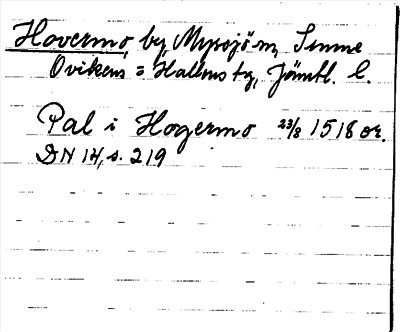 Hovermo, by, Myssjö sn, Sunne
Ovikens o Hallens tg, Jämtl. l.
Pal i Hogermo 23/8 1518 or.
DN 14, s. 219